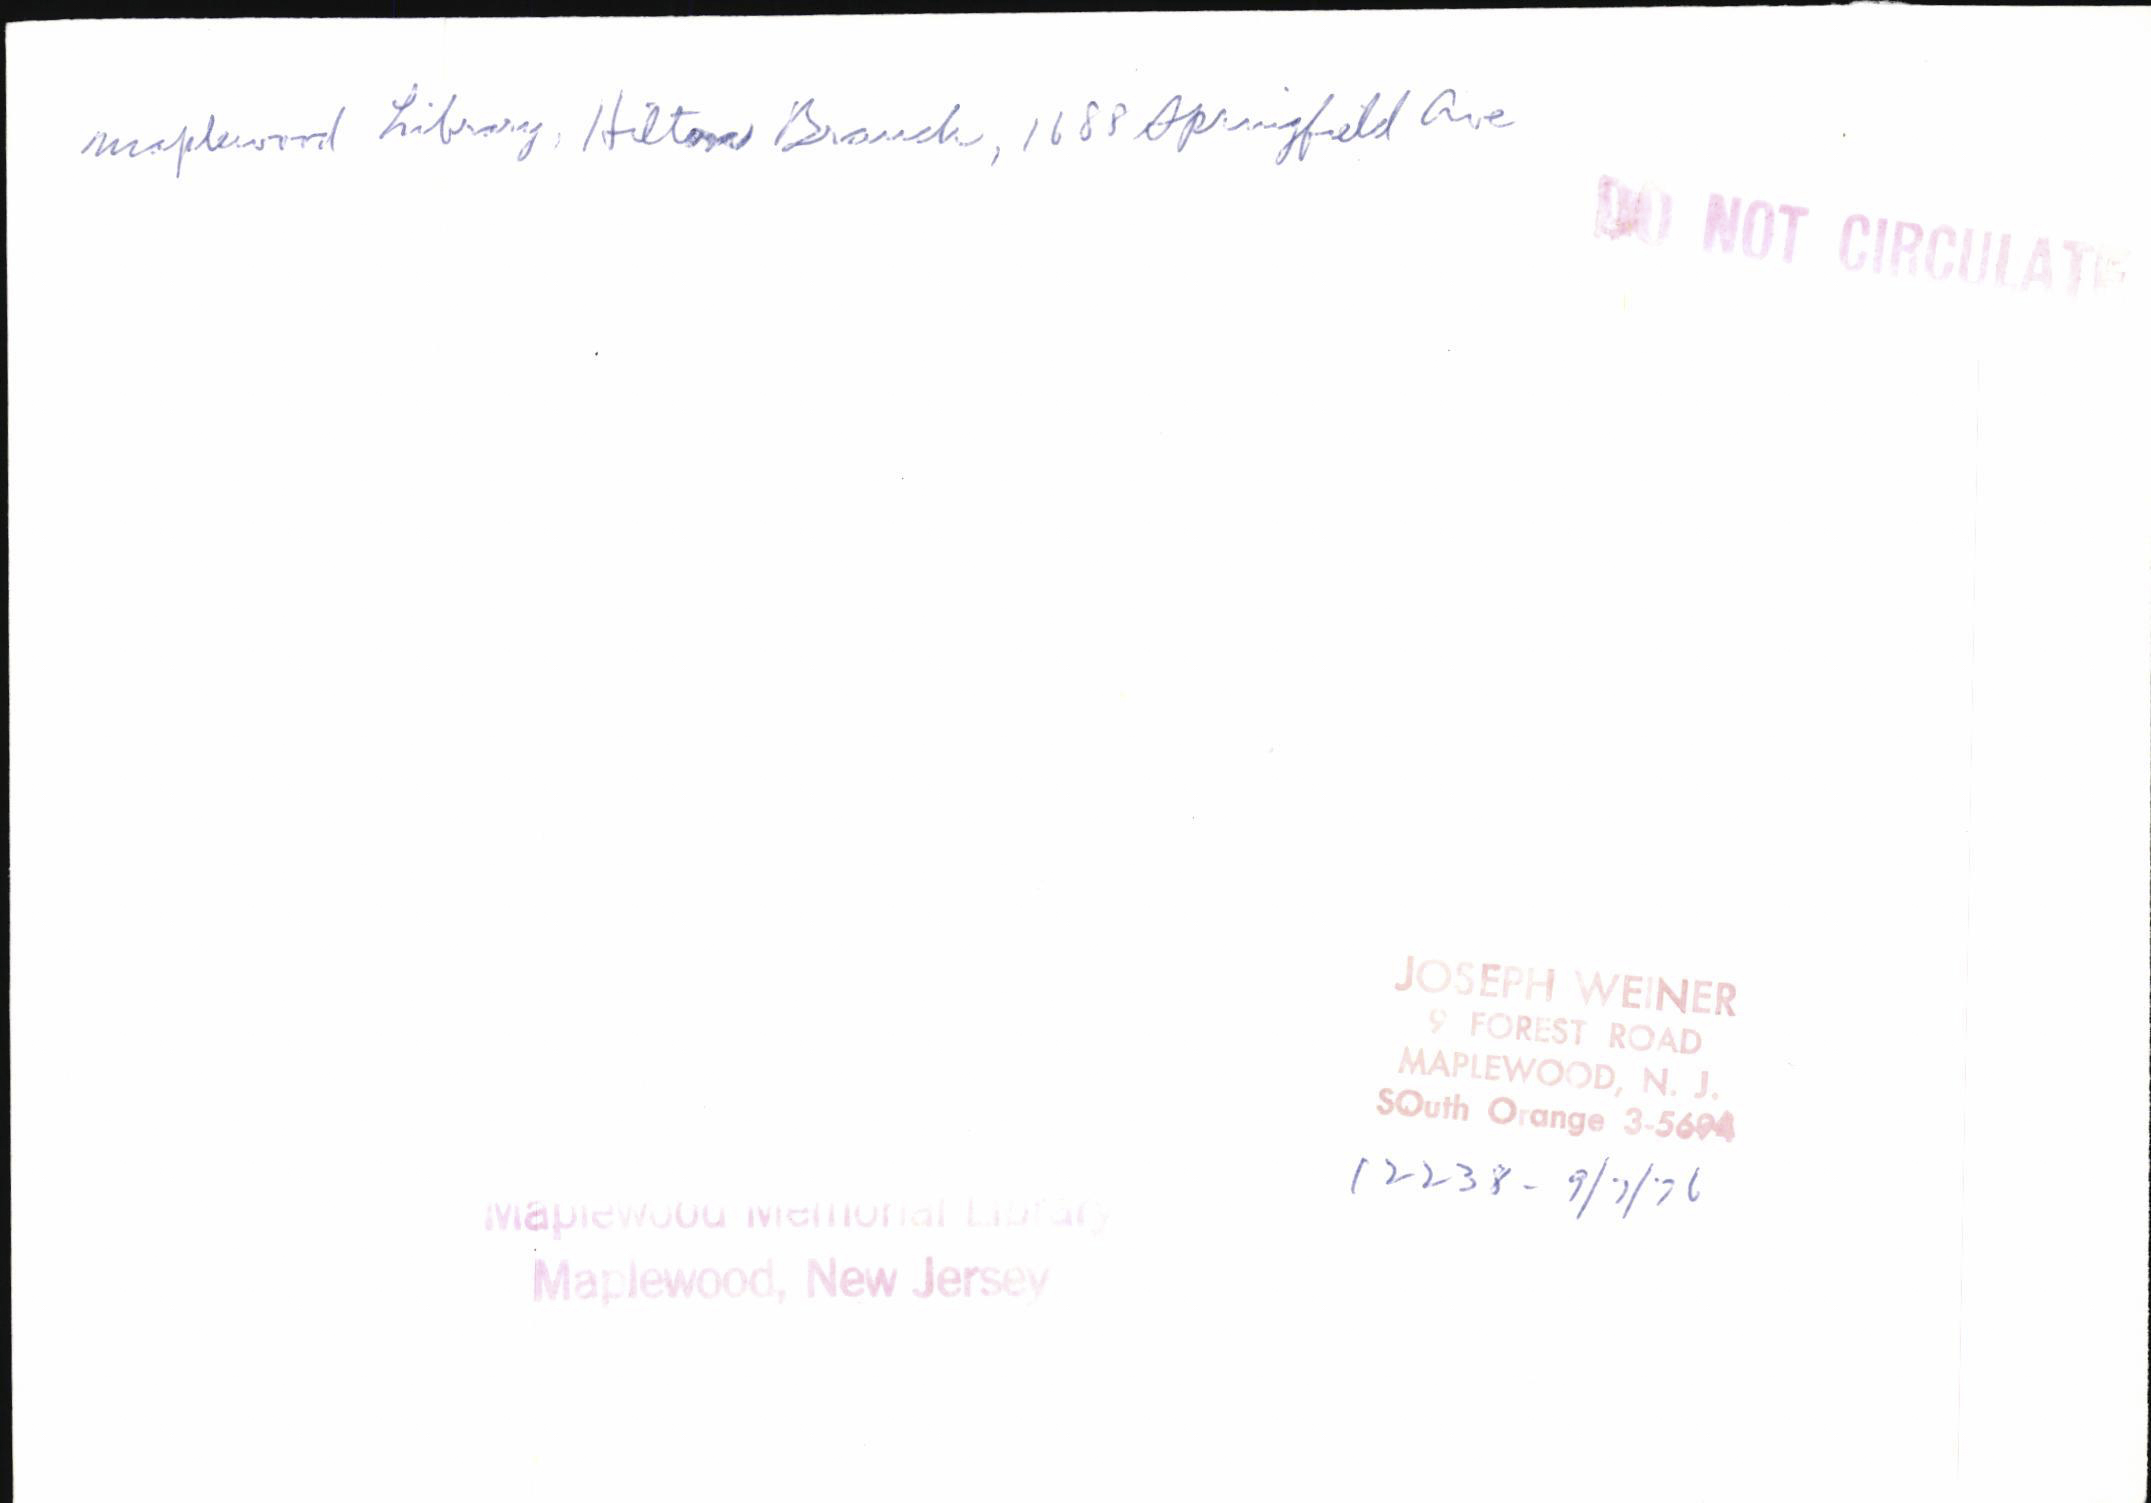 Maplewood Library, Hilton Branch, 1688 Springfield Ave
DO NOT CIRCULATE
JOSEPH WEINER
9 FOREST ROAD
MAPLEWOOD, N. J.
SOuth Orange 3-5694
12238 - 9/7/76
Maplewood Memorial Library
Maplewood, New Jersey